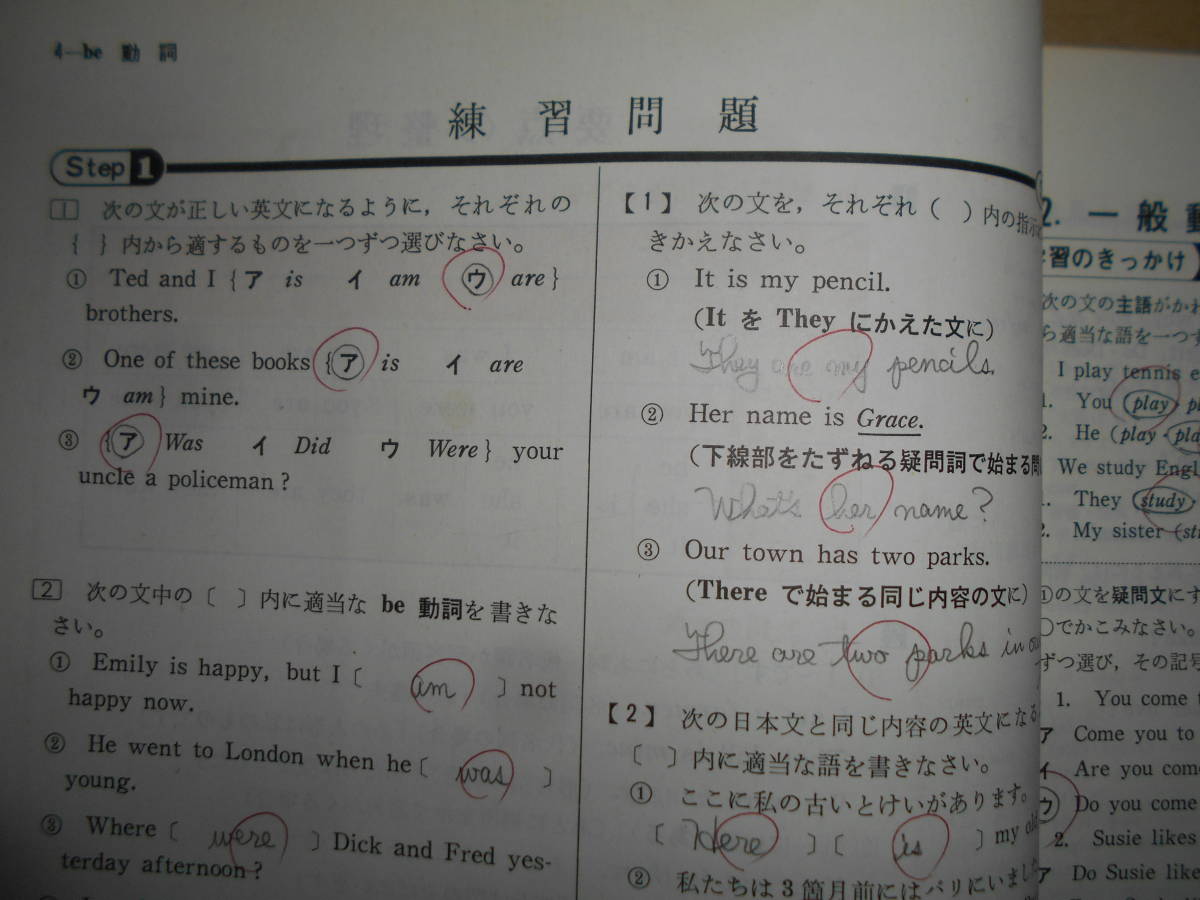 4—be 動 詞
練 習 問 題
Step 1
1 次の文が正しい英文になるように，それぞれの
｛ ｝内から適するものを一つずつ選びなさい。
① Ted and I {ア is イ am ウ are}
brothers.
② One of these books {ア is イ are
ウ am} mine.
③ {ア Was イ Did ウ Were} your
uncle a policeman?
2 次の文中の〔 〕内に適当な be 動詞を書きな
さい。
① Emily is happy, but I〔 am 〕not
happy now.
② He went to London when he〔 was 〕
young.
③ Where〔 were 〕Dick and Fred yes-
terday afternoon?
【1】 次の文を，それぞれ（ ）内の指示
きかえなさい。
① It is my pencil.
(It を They にかえた文に)
They are my pencils.
② Her name is Grace.
(下線部をたずねる疑問詞で始まる
What's her name?
③ Our town has two parks.
(There で始まる同じ内容の文に)
There are two parks in
【2】 次の日本文と同じ内容の英文になる
〔 〕内に適当な語を書きなさい。
① ここに私の古いとけいがあります。
〔 Here 〕〔 is 〕my
② 私たちは3箇月前にはパリにいました
2. 一 般
学習のきっかけ
次の文の主語がか
ら適当な語を一つず
I play tennis
1. You (play
2. He (play・
We study
1. They (study・
2. My sister
①の文を疑問文にす
○でかこみなさい。
ずつ選び，その記号
1. You come
ア Come you to
イ Are you
ウ Do you come
2. Susie likes
ア Do Susie